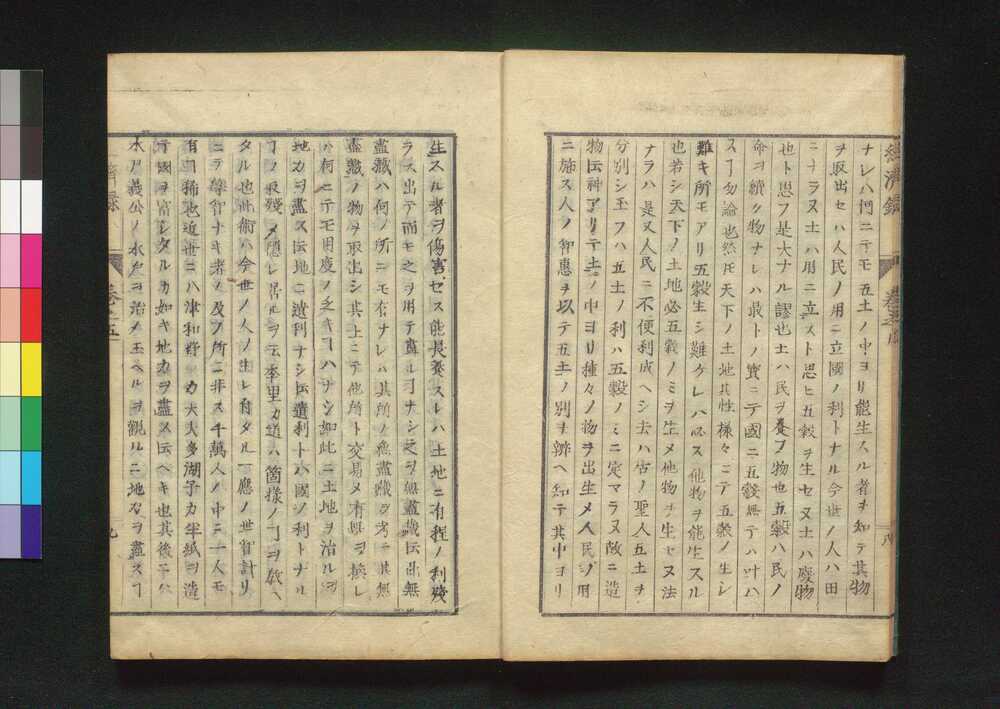 ナレハ何ニテモ五土ノ中ヨリ能生スル者ヲ知テ其物
ヲ取出セハ人民ノ用ニ立國ノ利トナル今世ノ人ハ田
ニナラヌ土ハ用ニ立スト思ヒ五穀ヲ生セヌ土ハ廢物
也ト思フ是大ナル謬也土ハ民ヲ養フ物也五穀ハ民ノ
命ヲ續ク物ナレハ最上ノ寳ニテ國ニ五穀無テハ叶ハ
スヿ勿論也然𪜈天下ノ土地其性様々ニテ五穀ノ生シ
難キ所モアリ五穀生シ難ケレハ必ス他物ヲ能生スル
也若シ天下ノ土地必五穀ノミヲ生メ他物ヲ生セヌ法
ナラハ是又人民ニ不便利成ヘシ去ハ古ノ聖人五土ヲ
分別シ玉フハ五土ノ利ハ五穀ノミニ定マラヌ故ニ造
物伝神アリテ土ノ中ヨリ種々ノ物ヲ出生メ人民ノ用
ニ施ス人ノ智惠ヲ以テ五土ノ別ヲ辨ヘ知テ其中ヨリ
經濟録
八
生スル者ヲ傷害セス能長養スレハ土地ニ有程ノ利残
ラス出テ而モ之ヲ用テ盡ルヿナシ之ヲ無盡藏伝此無
盡藏ハ何ノ所ニモ有ナレハ其所ノ無盡藏ヲ考ヘ其無
盡藏ノ物ヲ取出シ其土ニテ他所ト交易メ有無ヲ換レ
ハ何ニテモ用度ノ乏キヿハナシ如此ニ土地ヲ治ルヲ
地力ヲ盡ス伝地ニ遺利ナシ伝遺利トハ國ノ利トナル
ヿノ取残メ隠レ居ルヲ云李里カ道ハ箇様ノヿヲ教ヘ
タル也此術ハ今世ノ人ノ生レ付タル一應ノ世智計リ
ニテ學智ナキ者ノ及フ所ニ非ス千萬人ノ中ニ一人モ
有ヿ稀也近世ニハ津和野ノカ大夫多湖子カ半紙ヲ造
テ國ヲ富シタルカ如キ地力ヲ盡ス伝ヘキ也其後ニハ
水戸義公ノ水戸ヲ治メ玉ヘルヲ觀ルニ地力ヲ盡スヿ
濟録
卷之五
九